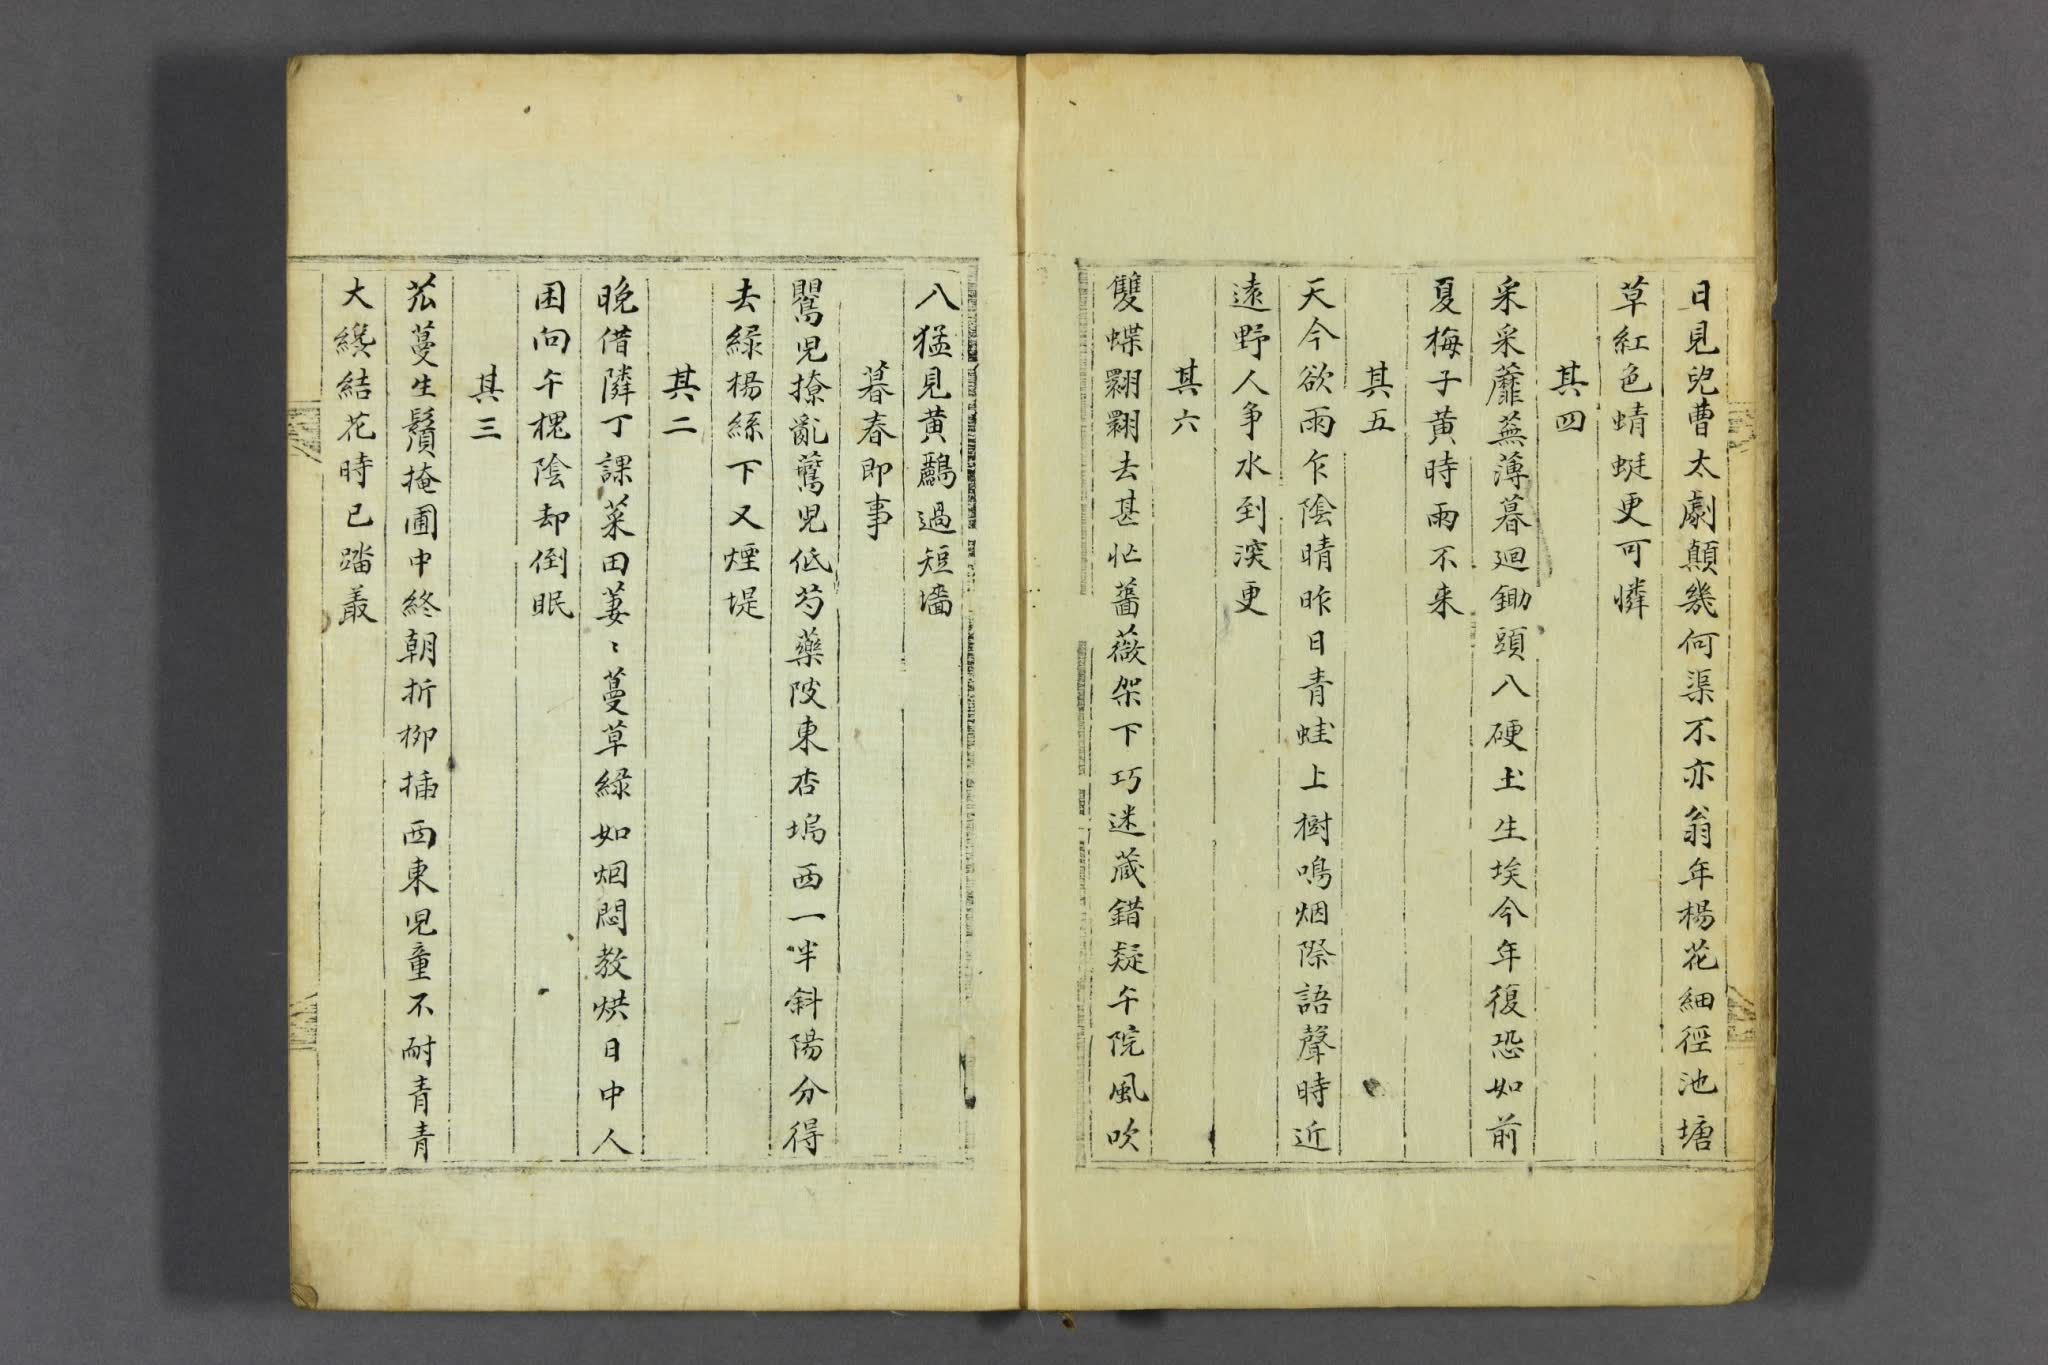 日見兒曹太劇顛幾何渠不亦翁年楊花細徑池塘
草紅色蜻蜓更可憐
其四
采采蘼蕪薄暮廻鋤頭八硬土生埃今年復恐如前
夏梅子黄時雨不来
其五
天今欲雨乍陰晴昨日青蛙上樹鳴烟際語聲時近
遠野人争水到深更
其六
雙蝶翾翾去甚忙薔薇架下巧迷蔵錯疑午院風吹
八猛見黄鸝過短墻
暮春即事
鸎児撩亂鷰児低芍藥陂東杏塢西一半斜陽分得
去緑楊絲下又煙堤
其二
晚借隣丁課菜田萋〻蔓草緑如烟悶教烘日中人
困向午槐陰却倒眠
其三
苽蔓生鬚掩圃中終朝折柳插西東児童不耐青青
大纔結花時已踏叢